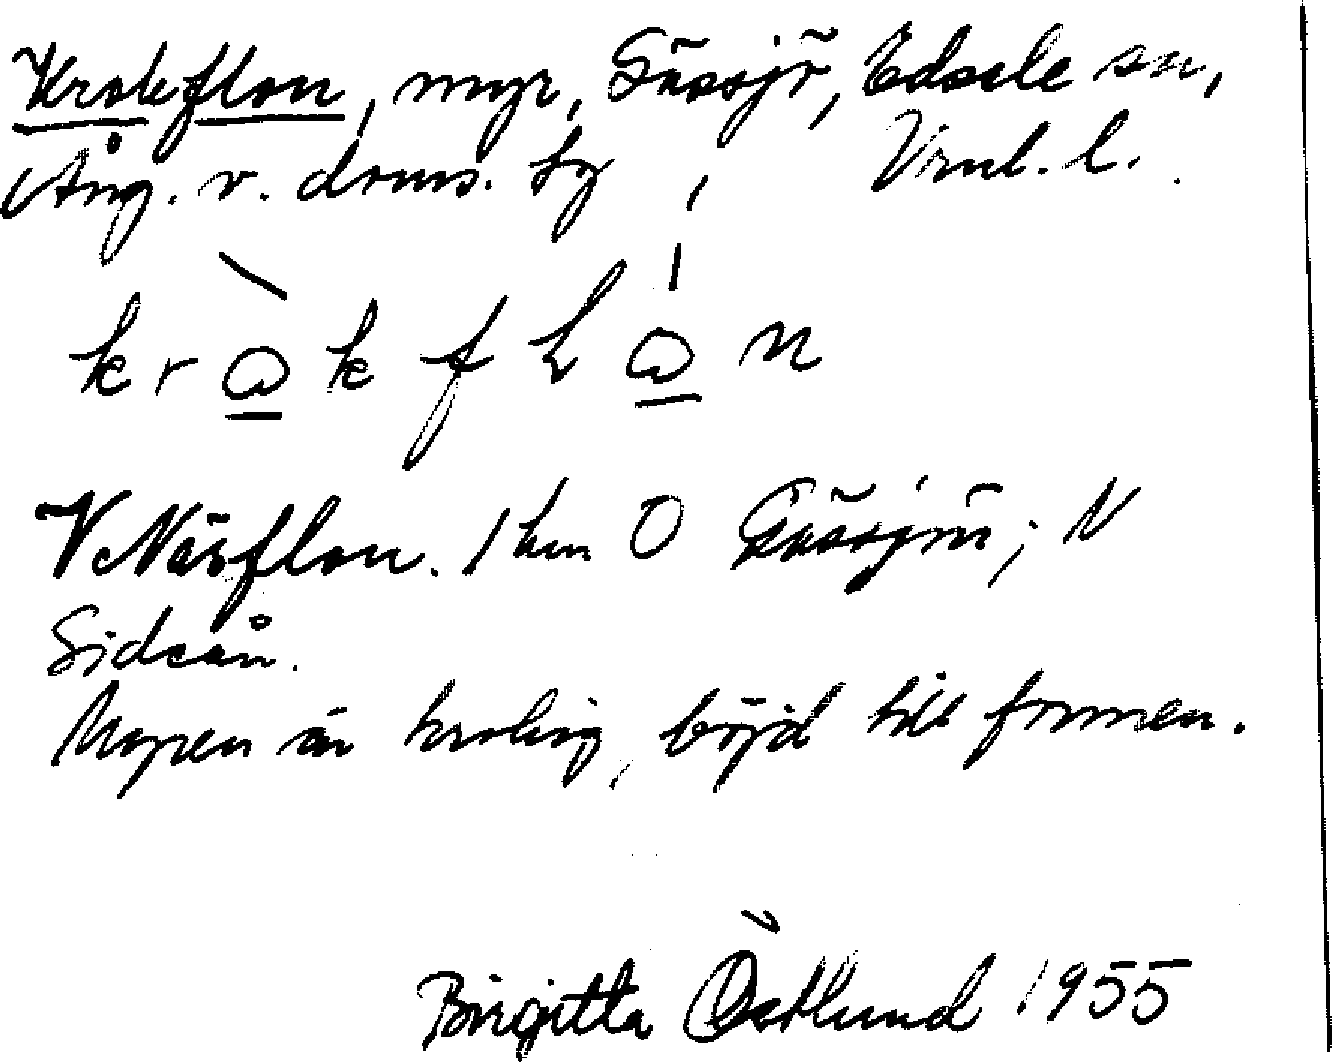 Krokflon, myr, Gåssjö, Edsele sn,
Ång. v. doms. sg Vrnl. l.
k r ω k f l ω n
V Näsflon. 1 km O Gåssjön; N
Sidsån.
Myren är krokig, böjd till formen.
Birgitta Östlund 1955